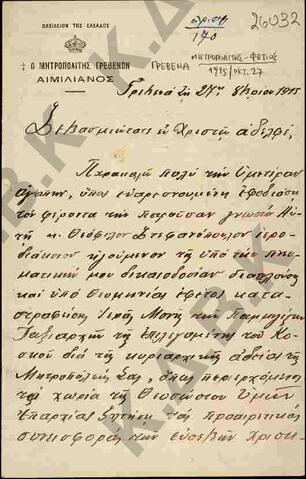 ΒΑΣΙΛΕΙΟΝ ΤΗΣ ΕΛΛΑΔΟΣ
26032
170
+ Ο ΜΗΤΡΟΠΟΛΙΤΗΣ ΓΡΕΒΕΝΩΝ
ΑΙΜΙΛΙΑΝΟΣ
ΓΡΕΒΕΝΑ
ΜΗΤΡΟΠΟΛΙΤΗΣ - ΦΩΤΙΟΣ
1915/ΟΚΤ. 27
Γρεβενά τῇ 27ῃ 8βρίου 1915
Σεβασμιώτατε ἐν Χριστῷ ἀδελφέ,
Παρακαλῶ πολὺ τὴν Ὑμετέραν
Ἀγάπην, ὅπως εὐαρεστουμένη ἐφοδιάσῃ
τὸν φέροντα τὴν παροῦσαν γνωστὸν Αὐ
τῇ κ. Θεόφιλον Στεφανόπουλον ἱερο
διάκονον ἡγούμενον τῆς ὑπὸ τὴν πνευ
ματικήν μου δικαιοδοσίαν διατελούσης
καὶ ὑπὸ θεομηνίας ἐφέτος κατα
στραφείσης Ἱερᾶς Μονῆς τῶν Παμμεγίστων
Ταξιαρχῶν τῆς
διὰ τῆς κυριαρχικῆς ἀδείας τῆς
Μητροπόλεώς Σας, ὅπως περιερχόμενος
τὰ χωρία τῆς Θεοσώστου Ὑμῶν
Ἐπαρχίας ζητήσῃ τὰς προαιρετικὰς
συνεισφορὰς τῶν εὐσεβῶν Χριστι
Κ.Α.Β.Κ